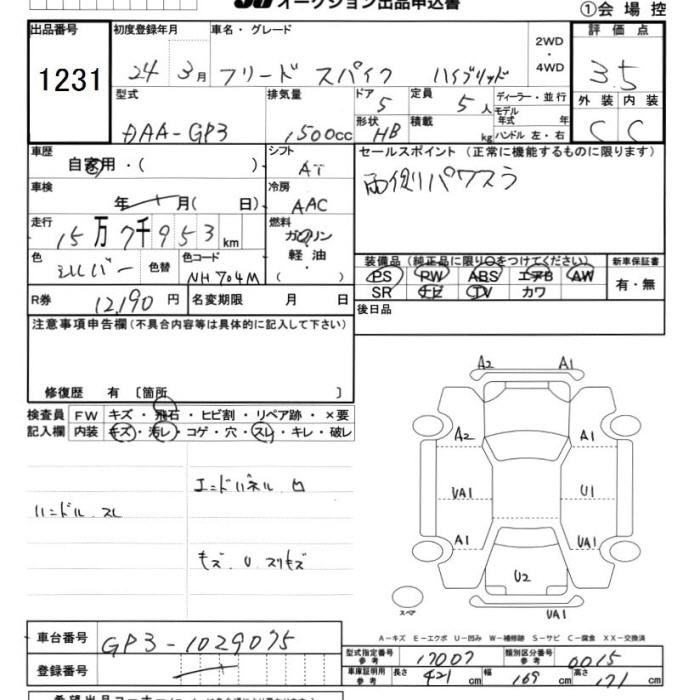 オークション出品申込書
①会場控
出品番号 1231
初度登録年月 24 3月
車名・グレード フリード スパイク ハイブリッド
2WD・4WD
評価点 3.5
型式 DAA-GP3
排気量 1500cc
ドア 5 形状 HB
定員 5人 積載 kg
ディーラー・並行
モデル年式 年
ハンドル 左・右
外装 内装
C C
車歴 自家用・( )
シフト AT
セールスポイント (正常に機能するものに限ります)
両側パワスラ
車検 年 月( 日)
冷房 AAC
走行 15万7千953km
燃料 ガソリン 軽油・( )
色 シルバー 色替
色コード NH704M
装備品 (純正品に限り○をつけてください)
新車保証書
PS PW ABS エアB AW
SR ナビ TV カワ
有・無
R券 12,190円
名変期限 月 日
後日品
注意事項申告欄(不具合内容等は具体的に記入して下さい)
修復歴 有 〔箇所 〕
検査員 FW キズ・飛石・ヒビ割・リペア跡・×要
記入欄 内装 キズ・汚レ・コゲ・穴・スレ・キレ・破レ
エンドパネル 凹
ハンドル スレ
キズ U スリキズ
A2 A1
A2 A1
UA1 U1
A1 UA1
U2
スペア
UA1
A-キズ E-エクボ U-凹み W-補修跡 S-サビ C-腐食 XX-交換済
車台番号 GP3-1029075
登録番号
型式指定番号 参考 17007
類別区分番号 参考 0015
車庫証明用 参考 長さ 421cm 幅 169cm 高さ 171cm